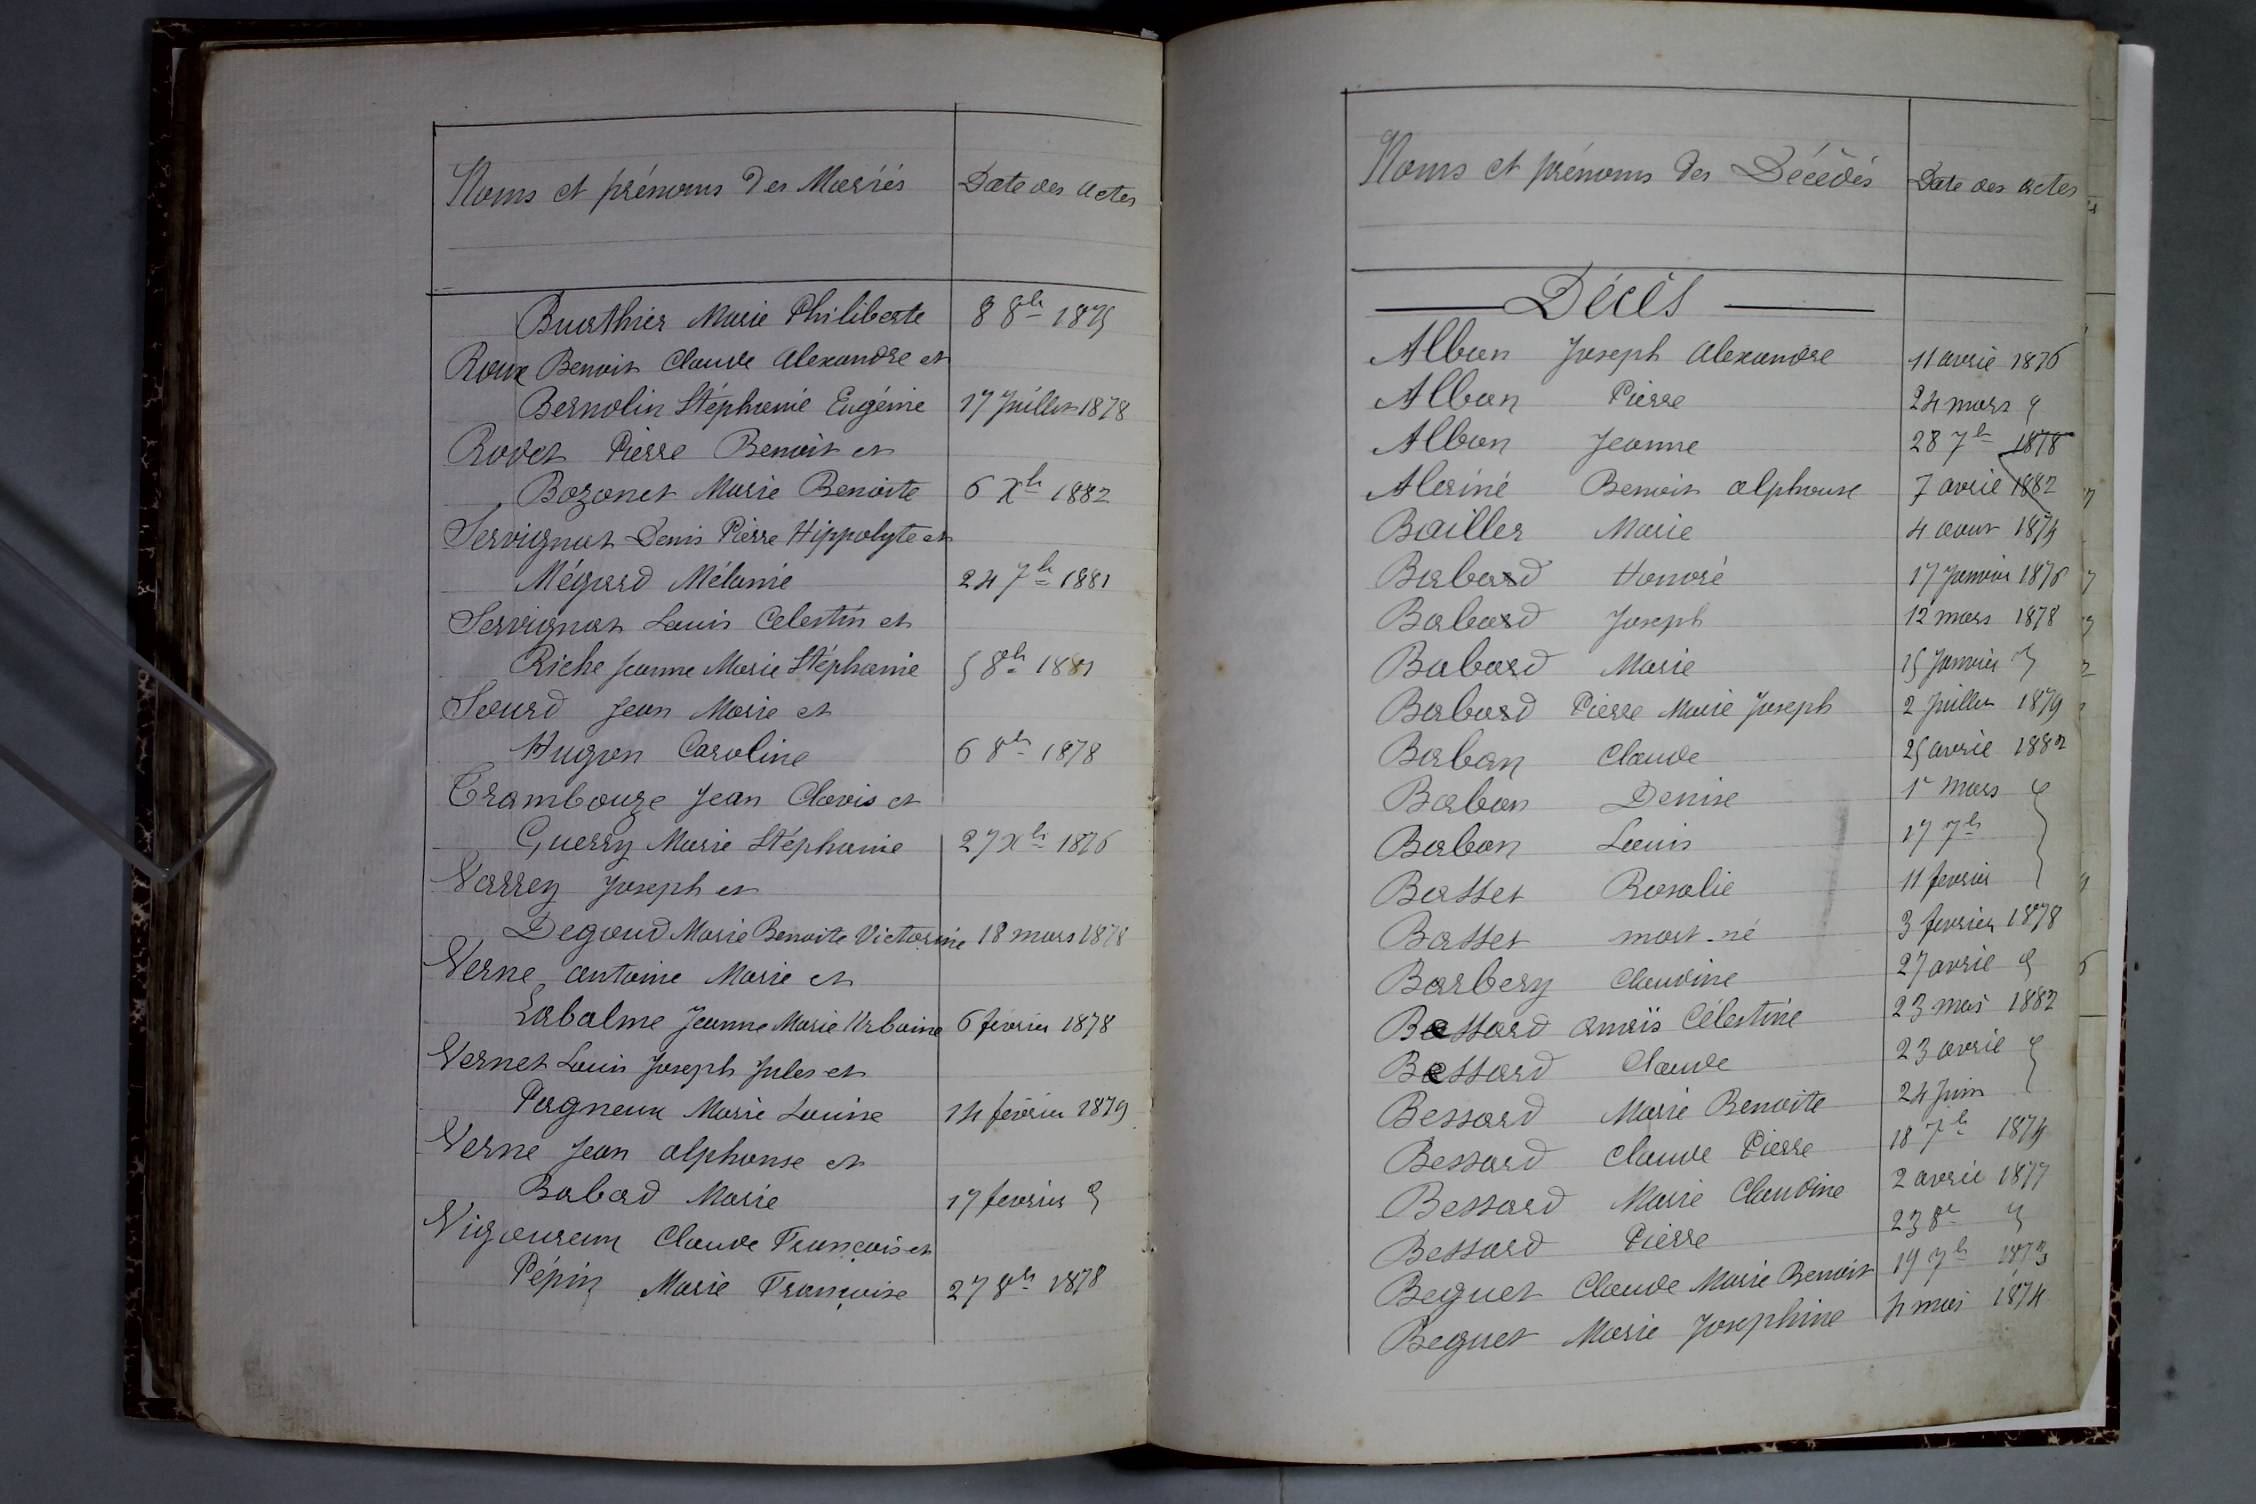 Noms et prénoms des Mariés Date des actes
Buathier Marie Philiberte 8 8bre 1875
Roux Benoit Claude Alexandre et
Bernolin Stéphanie Eugénie 17 Juillet 1878
Rodet Pierre Benoit et
Bozonet Marie Benoite 6 Xbre 1882
Servignat Denis Pierre Hippolyte et
Mégard Mélanie 24 7bre 1881
Servignat Louis Celestin et
Riche Jeanne Marie Stéphanie 5 8bre 1881
Sourd Jean Marie et
Hugon Caroline 6 8bre 1878
Trambouze Jean Clovis et
Guerry Marie Stéphanie 27 Xbre 1876
Varrey Joseph et
Degoud Marie Benoite Victorine 18 mars 1878
Verne antoine Marie et
Labalme Jeanne Marie Urbaine 6 février 1878
Vernet Louis Joseph Jules et
Pagneux Marie Louise 14 février 1879
Verne Jean alphonse et
Babad Marie 17 fevrier
Vigoureux Claude François et
Pépin Marie Françoise 27 8bre 1878
Noms et prénoms des Décédés Date des actes
Décès
Alban Joseph Alexandre 11 avril 1876
Alban Pierre 24 mars
Alban Jeanne 28 7bre 1878
Benoit alphonse 7 avril 1882
Bailler Marie 4 aout 1874
Babad Honoré 17 Janvier 1876
Babad Joseph 12 mars 1878
Babad Marie 15 Janvier
Babad Pierre Marie Joseph 2 Juillet 1879
Baban Claude 25 avril 1882
Baban Denise 1r mars
Baban Louis 17 7bre
Basset Rosalie 11 fevrier
Basset mort-né 3 fevrier 1878
Barbery Claudine 27 avril
Bessard Anaïs Célestine 23 mai 1882
Bessard Claude 23 avril
Bessard Marie Benoite 24 Juin
Bessard Claude Pierre 18 7bre 1874
Bessard Marie Claudine 2 avril 1877
Bessard Pierre 23 8e
Beguet Claude Marie Benoit 19 7bre 1873
Beguet Marie Josephine 4 mai 1874